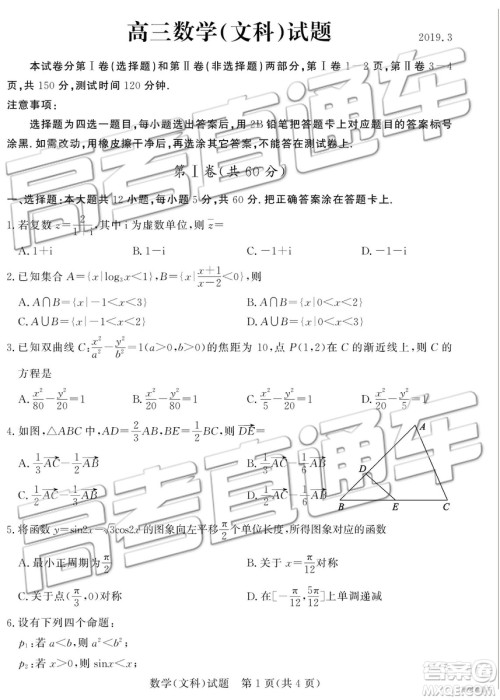 高三数学(文科)试题
2019.3
本试卷分第Ⅰ卷(选择题)和第Ⅱ卷(非选择题)两部分,第Ⅰ卷1-3页,第Ⅱ卷3-4
页,共150分,测试时间120分钟.
注意事项:
选择题为四选一题目,每小题选出答案后,用2B铅笔把答题卡上对应题目的答案标号
涂黑.如需改动,用橡皮擦干净后,再选涂其他答案标号,不能答在测试卷上.
第Ⅰ卷(共60分)
一、选择题:本大题共12小题,每小题5分,共60分.把正确答案涂在答题卡上.
1.若复数z=2/(1+i),其中i为虚数单位,则z̅=
A.1+i B.1-i C.-1+i D.-1-i
2.已知集合A={x|log₃x<1},B={x|(x+1)/(x-2)<0},则
A.A∩B={x|-1<x<3} B.A∩B={x|-1<x<2}
C.A∪B={x|-1<x<3} D.A∪B={x|-1<x<2}
3.已知双曲线C:x²/a²-y²/b²=1(a>0,b>0)的焦距为10,点P(1,2)在C的渐近线上,则C的
方程是
A.x²/80-y²/20=1 B.x²/20-y²/80=1 C.x²/5-y²/20=1 D.x²/20-y²/5=1
4.如图,△ABC中,AD=2/3AB,BE=1/2BC,则DE=
A.1/3AC-1/2AB B.1/2AC-1/3AB
C.1/2AC-1/2AB D.1/2AC-1/6AB
A
D
B E C
5.将函数y=sin2x-√3cos2x的图象向左平移π/2个单位长度,所得图象对应的函数
A.最小正周期为π/2 B.关于x=π/12对称
C.关于点(π/3,0)对称 D.在[-π/12,5π/12]上单调递减
6.设有下列四个命题:
p₁:若a<b,则a²<b²;
p₂:若x>0,则sinx<x;
数学(文科)试题 第1页(共4页)
高考直通车
高考直通车